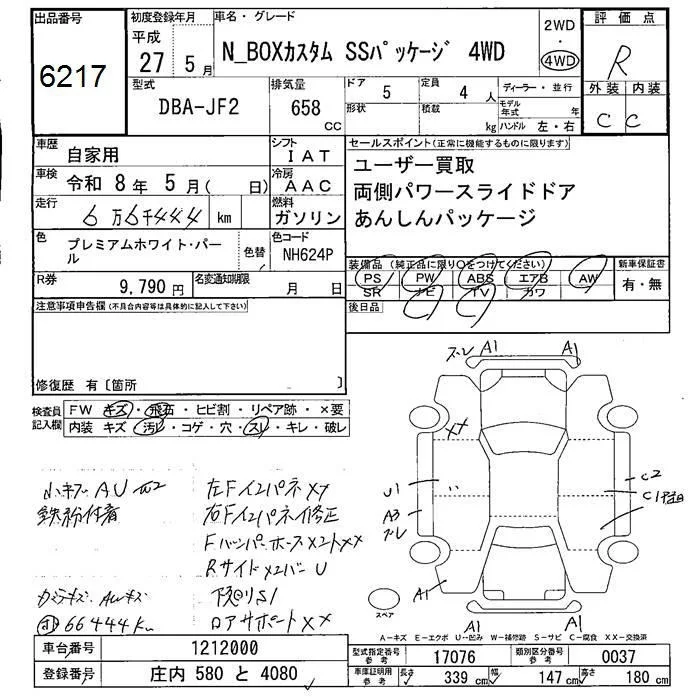 出品番号
6217
初度登録年月
平成
27 5月
車名・グレード
N_BOXカスタム SSパッケージ 4WD
2WD
・
4WD
評価点
R
外装 内装
C C
型式
DBA-JF2
排気量
658
CC
ドア
5
形状
定員
4 人
積載
kg
ディーラー・並行
モデル
年式 年
ハンドル 左・右
車歴
自家用
シフト
IAT
車検
令和 8年 5月( 日)
冷房
AAC
走行
6万6千444 km
燃料
ガソリン
色
プレミアムホワイト・パール
色替
色コード
NH624P
R券
9,790円
名変通知期限
月 日
セールスポイント(正常に機能するものに限ります)
ユーザー買取
両側パワースライドドア
あんしんパッケージ
装備品 (純正品に限り○をつけてください)
PS PW ABS エアB AW
SR ナビ TV カワ
新車保証書
有・無
後日品
注意事項申告欄(不具合内容等は具体的に記入して下さい)
修復歴 有〔箇所 〕
検査員
記入欄
FW キズ・飛石・ヒビ割・リペア跡・×要
内装 キズ・汚レ・コゲ・穴・スレ・キレ・破レ
小キズ AU
鉄粉付着
左FインパネXX
右Fインパネ修正
Fバンパーホース×2ト××
Rサイド×2バーU
カマキズ・AWキズ
下廻りS1
走 66444K
ロアサポートXX
ズレ A1 A1
XX
U1
A3
ズレ
C2
C1
A1
A1 A1
スペア
A-キズ E-エクボ U-凹み W-補修跡 S-サビ C-腐食 XX-交換済
車台番号 1212000
登録番号 庄内 580 と 4080
型式指定番号
参考
17076
類別区分番号
参考
0037
車庫証明用
参考
長さ 339 cm 幅 147 cm 高さ 180 cm